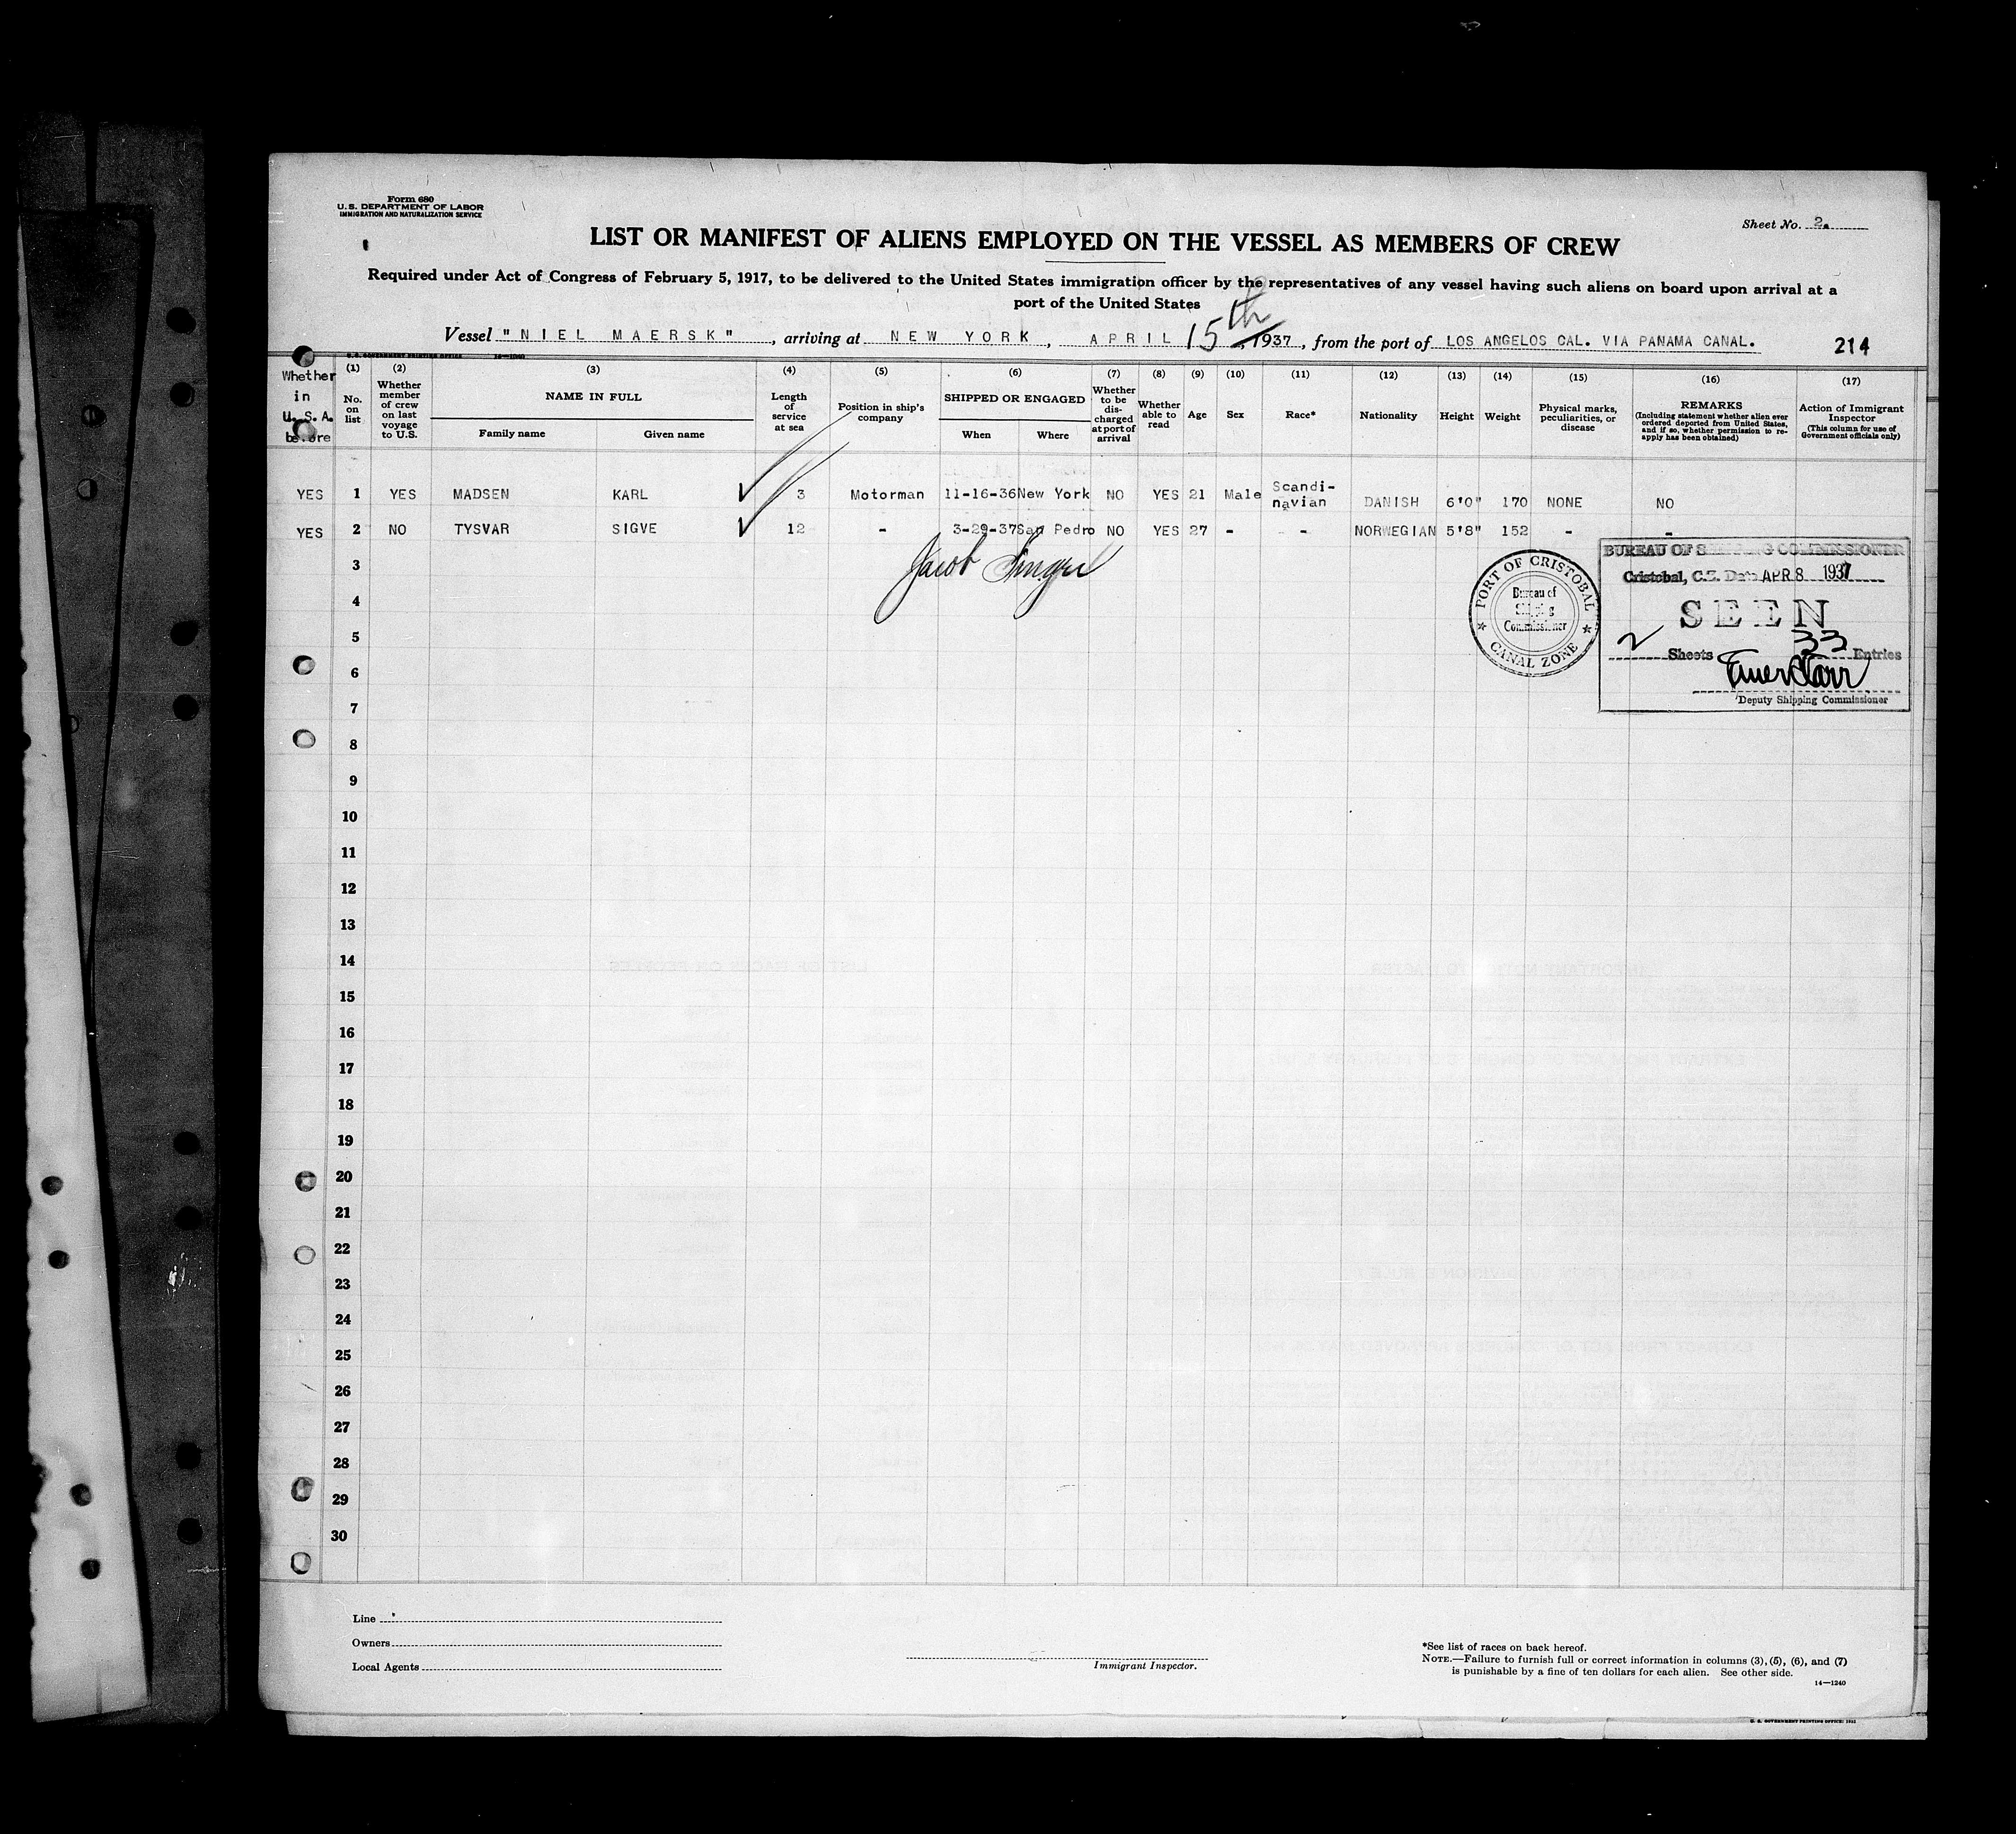 Form 680
U. S. DEPARTMENT OF LABOR
IMMIGRATION AND NATURALIZATION SERVICE
Sheet No. 2.
LIST OR MANIFEST OF ALIENS EMPLOYED ON THE VESSEL AS MEMBERS OF CREW
Required under Act of Congress of February 5, 1917, to be delivered to the United States immigration officer by the representatives of any vessel having such aliens on board upon arrival at a
port of the United States
Vessel "NIEL MAERSK", arriving at NEW YORK, APRIL 15th, 1937, from the port of LOS ANGELOS CAL. VIA PANAMA CANAL.
214
U. S. GOVERNMENT PRINTING OFFICE 14—1240
Whether in U.S.A. before
(1) No. on list
(2) Whether member of crew on last voyage to U.S.
(3) NAME IN FULL
Family name
Given name
(4) Length of service at sea
(5) Position in ship's company
(6) SHIPPED OR ENGAGED
When
Where
(7) Whether to be discharged at port of arrival
(8) Whether able to read
(9) Age
(10) Sex
(11) Race*
(12) Nationality
(13) Height
(14) Weight
(15) Physical marks, peculiarities, or disease
(16) REMARKS (Including statement whether alien ever ordered deported from United States, and if so, whether permission to re-apply has been obtained)
(17) Action of Immigrant Inspector (This column for use of Government officials only)
YES 1 YES MADSEN KARL 3 Motorman 11-16-36 New York NO YES 21 Male Scandi-navian DANISH 6'0" 170 NONE NO
YES 2 NO TYSVAR SIGVE 12 - 3-29-37 San Pedro NO YES 27 - - NORWEGIAN 5'8" 152 - -
Jacob Singer
3
4
5
6
7
8
9
10
11
12
13
14
15
16
17
18
19
20
21
22
23
24
25
26
27
28
29
30
PORT OF CRISTOBAL
Bureau of
Shipping
Commissioner
CANAL ZONE
BUREAU OF SHIPPING COMMISSIONER
Cristobal, C.Z. Date APR 8 1937
SEEN
2 Sheets 33 Entries
Deputy Shipping Commissioner
Line
Owners
Local Agents
Immigrant Inspector.
*See list of races on back hereof.
NOTE.—Failure to furnish full or correct information in columns (3), (5), (6), and (7)
is punishable by a fine of ten dollars for each alien. See other side.
14—1240